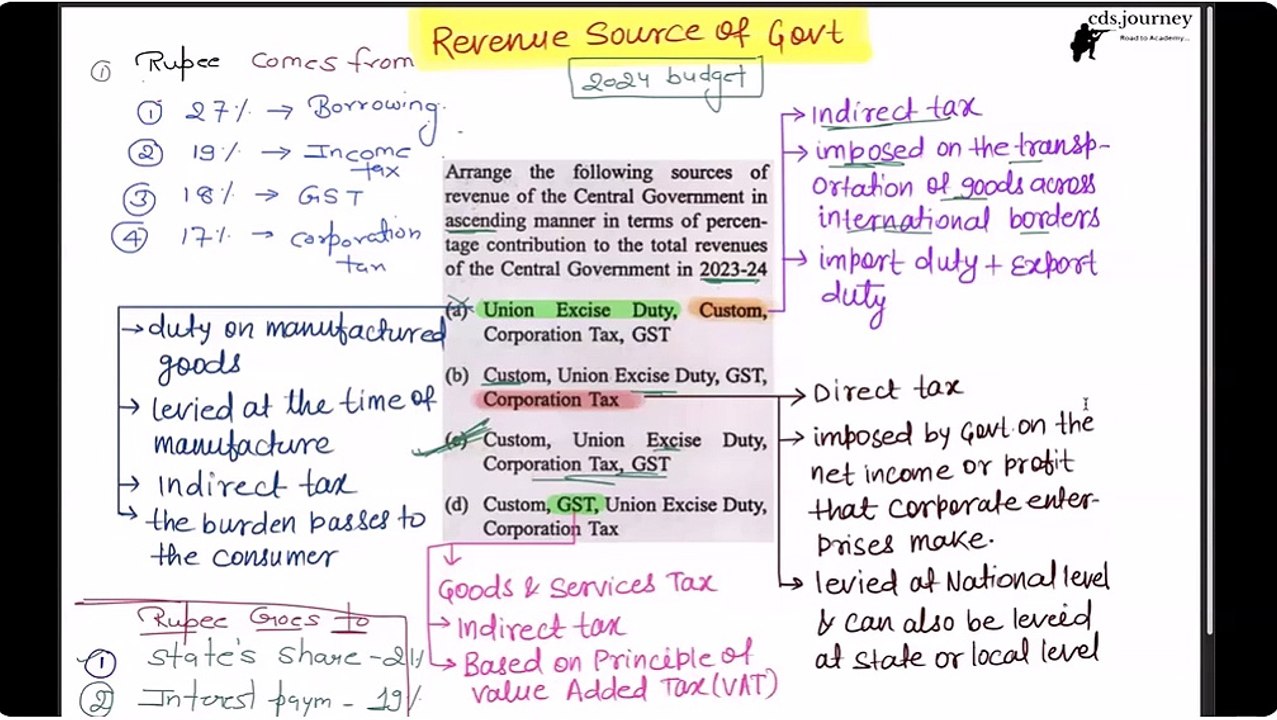 Revenue Source of Govt
2024 budget
cds.journey
Road to Academy...
① Rupee comes from
① 27% → Borrowing.
② 19% → Income
tax
③ 18% → GST
④ 17% → corporation
tax
Arrange the following sources of
revenue of the Central Government in
ascending manner in terms of percen-
tage contribution to the total revenues
of the Central Government in 2023-24
(a) Union Excise Duty, Custom,
Corporation Tax, GST
(b) Custom, Union Excise Duty, GST,
Corporation Tax
(c) Custom, Union Excise Duty,
Corporation Tax, GST
(d) Custom, GST, Union Excise Duty,
Corporation Tax
→ Indirect tax
→ imposed on the transp-
ortation of goods across
international borders
→ import duty + Export
duty
→ duty on manufactured
goods
→ levied at the time of
manufacture
→ indirect tax
→ the burden passes to
the consumer
→ Direct tax
→ imposed by Govt. on the
net income or profit
that corporate enter-
prises make.
→ levied at National level
& can also be leveid
at state or local level
Goods & Services Tax
→ Indirect tax
→ Based on Principle of
value Added Tax (VAT)
Rupee Goes to
① State's share - 21%
② Interest paym - 19%